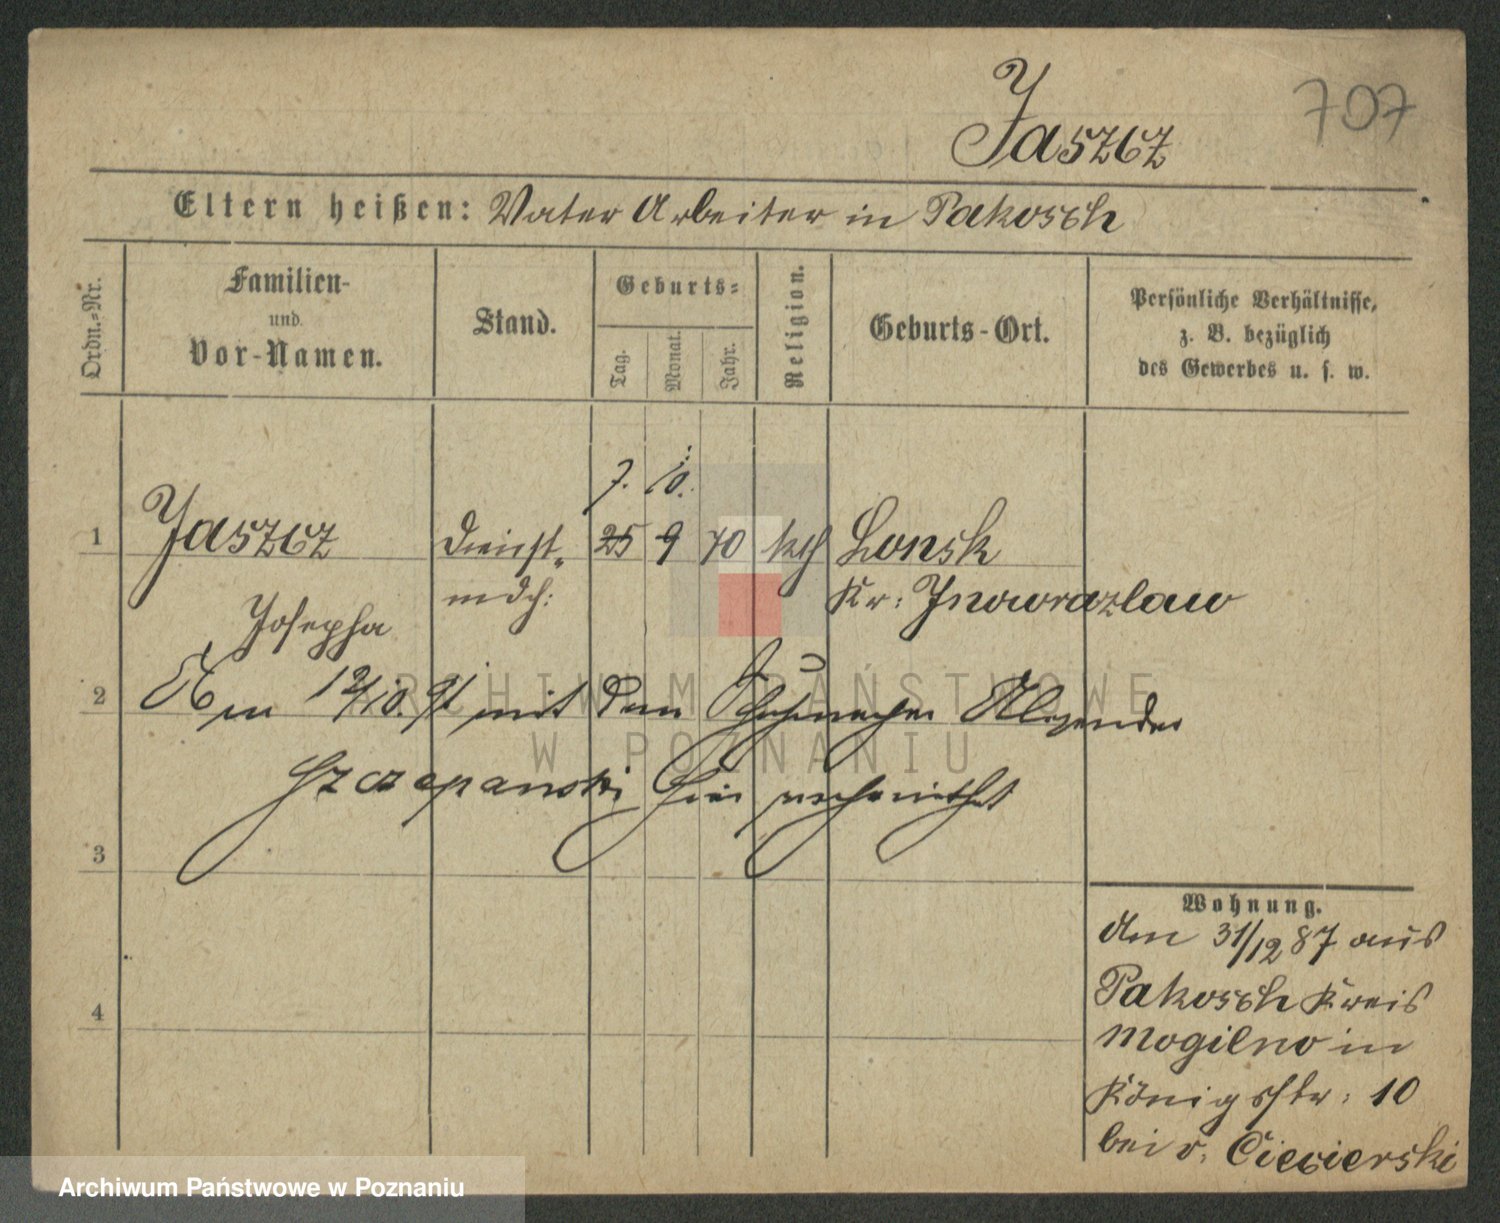 Jaszcz
707
Eltern heißen: Vater Arbeiter in Pakosch
Ordn.-Nr.
Familien-
und
Vor-Namen.
Stand.
Geburts-
Tag.
Monat.
Jahr.
Religion.
Geburts-Ort.
Persönliche Verhältnisse,
z. B. bezüglich
des Gewerbes u. s. w.
7. 10.
1 Jaszcz Dienst- 25 9 70 kth Lonsk
mdch: Kr: Inowrazlaw
Josepha
2 Am 12/10. 91 mit dem Schuhmacher Alexander
Szczepanski hier verheirathet
3
4
Wohnung.
Am 31/12 87 aus
Pakosch Kreis
Mogilno in
Königsstr: 10
bei v. Ciesierski
ARCHIWUM PAŃSTWOWE
W POZNANIU
Archiwum Państwowe w Poznaniu